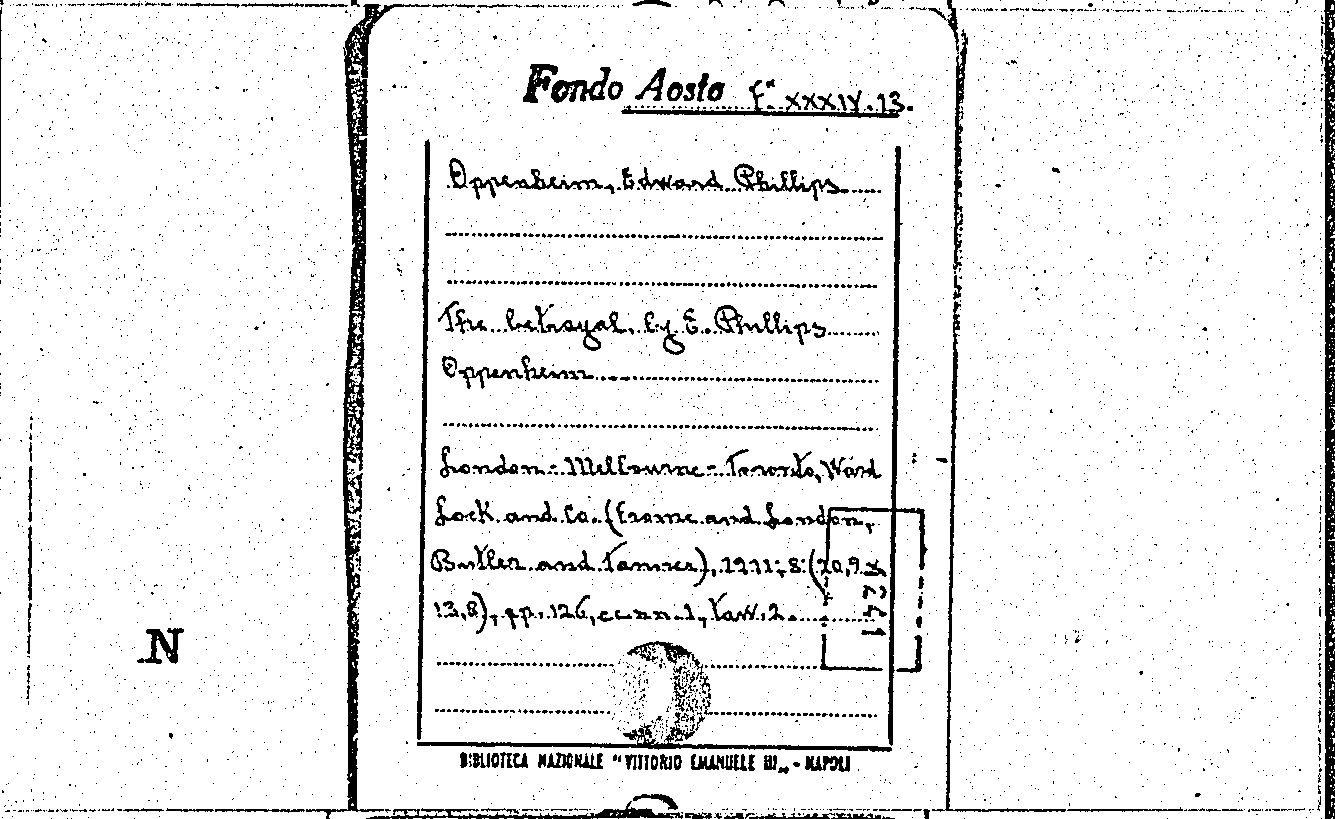 Fondo Aosta Fª XXXIV.13.
Oppenheim, Edward Phillips
The betrayal, by E. Phillips
Oppenheim
London-Melbourne-Toronto, Ward
Lock and Co. (Frome and London,
Butler and Tanner), 1911; 8: (20,9 x
13,8), pp. 126, c.c. nn. 1, tav. 2.
1441
N
BIBLIOTECA NAZIONALE "VITTORIO EMANUELE III„ - NAPOLI